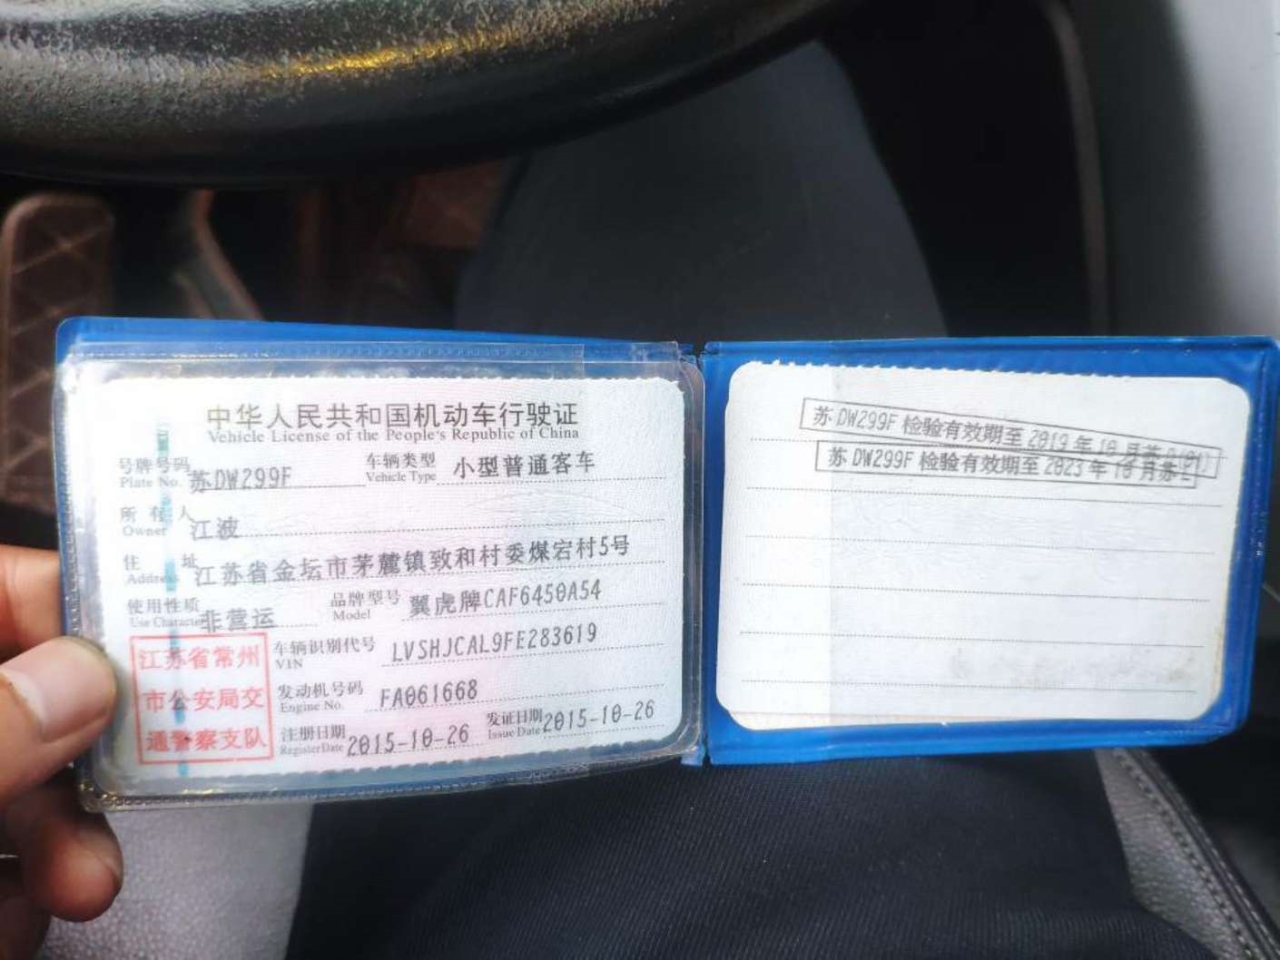 中华人民共和国机动车行驶证
Vehicle License of the People's Republic of China
号牌号码 苏DW299F 车辆类型 小型普通客车
Plate No. Vehicle Type
所有人 江波
Owner
住址 江苏省金坛市茅麓镇致和村委煤宕村5号
Address
使用性质 非营运 品牌型号 翼虎牌CAF6450A54
Use Character Model
江苏省常州
市公安局交
通警察支队
车辆识别代号 LVSHJCAL9FE283619
VIN
发动机号码 FA061668
Engine No.
注册日期 2015-10-26 发证日期 2015-10-26
Register Date Issue Date
苏DW299F 检验有效期至 2019 年 10 月
苏DW299F 检验有效期至 2023 年 10 月